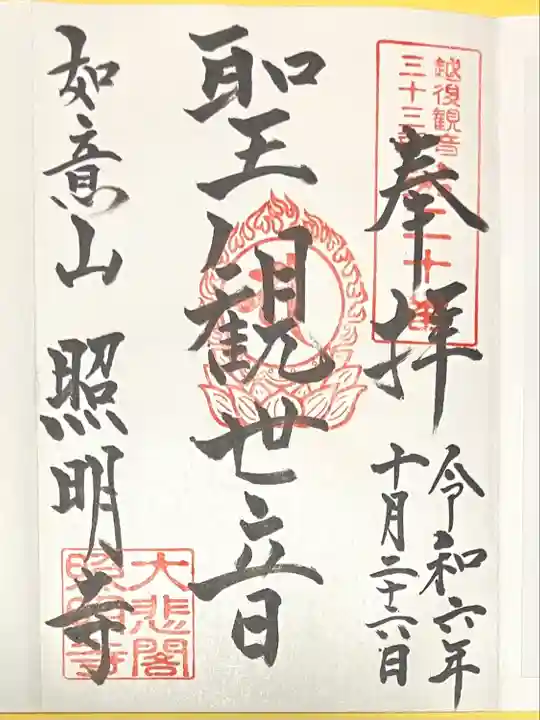 奉拝
令和六年
十月二十六日
越後観音
三十三
聖観世音
如意山 照明寺
大悲閣
照明寺